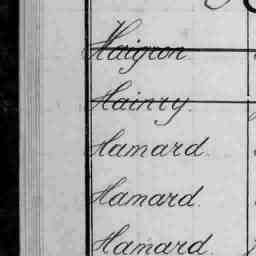 Haigron
Hainry.
Hamard.
Hamard.
Hamard.